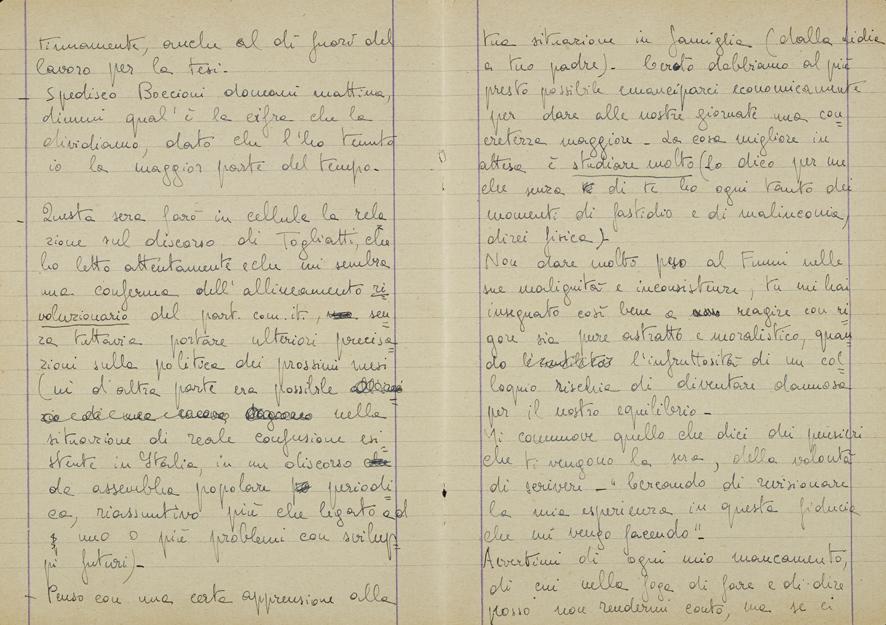 timamente, anche al di fuori del
lavoro per la Tesi.
– Spedisco Boccioni domani mattina,
dimmi qual'è la cifra che la
dividiamo, dato che l'ho tenuto
io la maggior parte del tempo.
– Questa sera farò in cellula la rela
zione sul discorso di Togliatti, che
ho letto attentamente e che mi sembra
una conferma dell'allineamento ri
voluzionario del part. com. it., sen
za tuttavia portare ulteriori precisa
zioni sulla politica dei prossimi mesi
(nè d'altra parte era possibile
nella
situazione di reale confusione esi
stente in Italia, in un discorso
da assemblea popolare periodi
ca, riassuntivo più che legato ad
uno o più problemi con svilup
pi futuri) –
– Penso con una certa apprensione alla
tua situazione in famiglia (dalla Lidia
a tuo padre). Certo dobbiamo al più
presto possibile emanciparci economicamente
per dare alle nostre giornate una con
cretezza maggiore – La cosa migliore in
attesa è studiare molto (Lo dico per me
che senza di te ho ogni tanto dei
momenti di fastidio e di malinconia,
direi fisica) –
Non dare molto peso al Fumi nelle
sue malignità e inconsistenze, tu mi hai
insegnato così bene a reagire con ri
gore sia pure astratto e moralistico, quan
do l'infruttosità di un col
loquio rischia di diventare dannosa
per il nostro equilibrio –
Mi commuove quello che dici dei pensieri
che ti vengono la sera, della volontà
di scrivere – "Cercando di revisionare
la mia esperienza in questa fiducia
che mi vengo facendo" –
Avvertimi di ogni mio mancamento,
di cui nella foga di fare e di dire
posso non rendermi conto, ma se ci